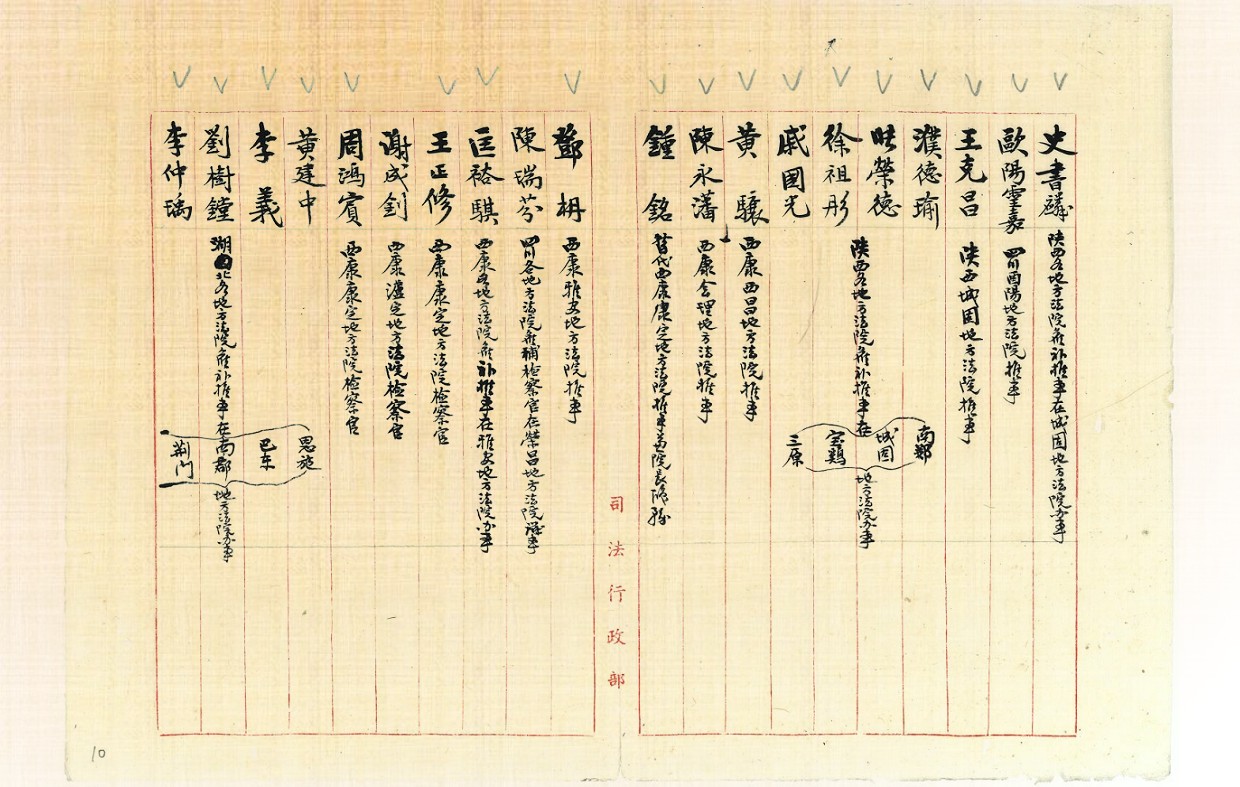 史書麟 陝西各地方法院候补推事在城固地方法院办事
歐陽雲嘉 四川酉陽地方法院推事
王克昌 陝西城固地方法院推事
濮德瑜 南鄭
榮德 城固
陝西各地方法院候补推事在
地方法院办事
徐祖彤 宝鷄
戚国光 三原
黄驤 西康西昌地方法院推事
陳永藩 西康会理地方法院推事
鍾銘 西康康定地方法院推事兼院長
司法行政部
鄧枬 西康雅安地方法院推事
陳瑞芬 四川各地方法院候補检察官在榮昌地方法院办事
匡裕騏 西康各地方法院候补推事在雅安地方法院办事
王正修 西康康定地方法院检察官
謝成釗 西康瀘定地方法院检察官
周鴻賓 西康康定地方法院检察官
黄建中 恩施
李義 巴东
劉樹鐘 湖北各地方法院候补推事在南郡地方法院办事
李仲瑀 荆门
10